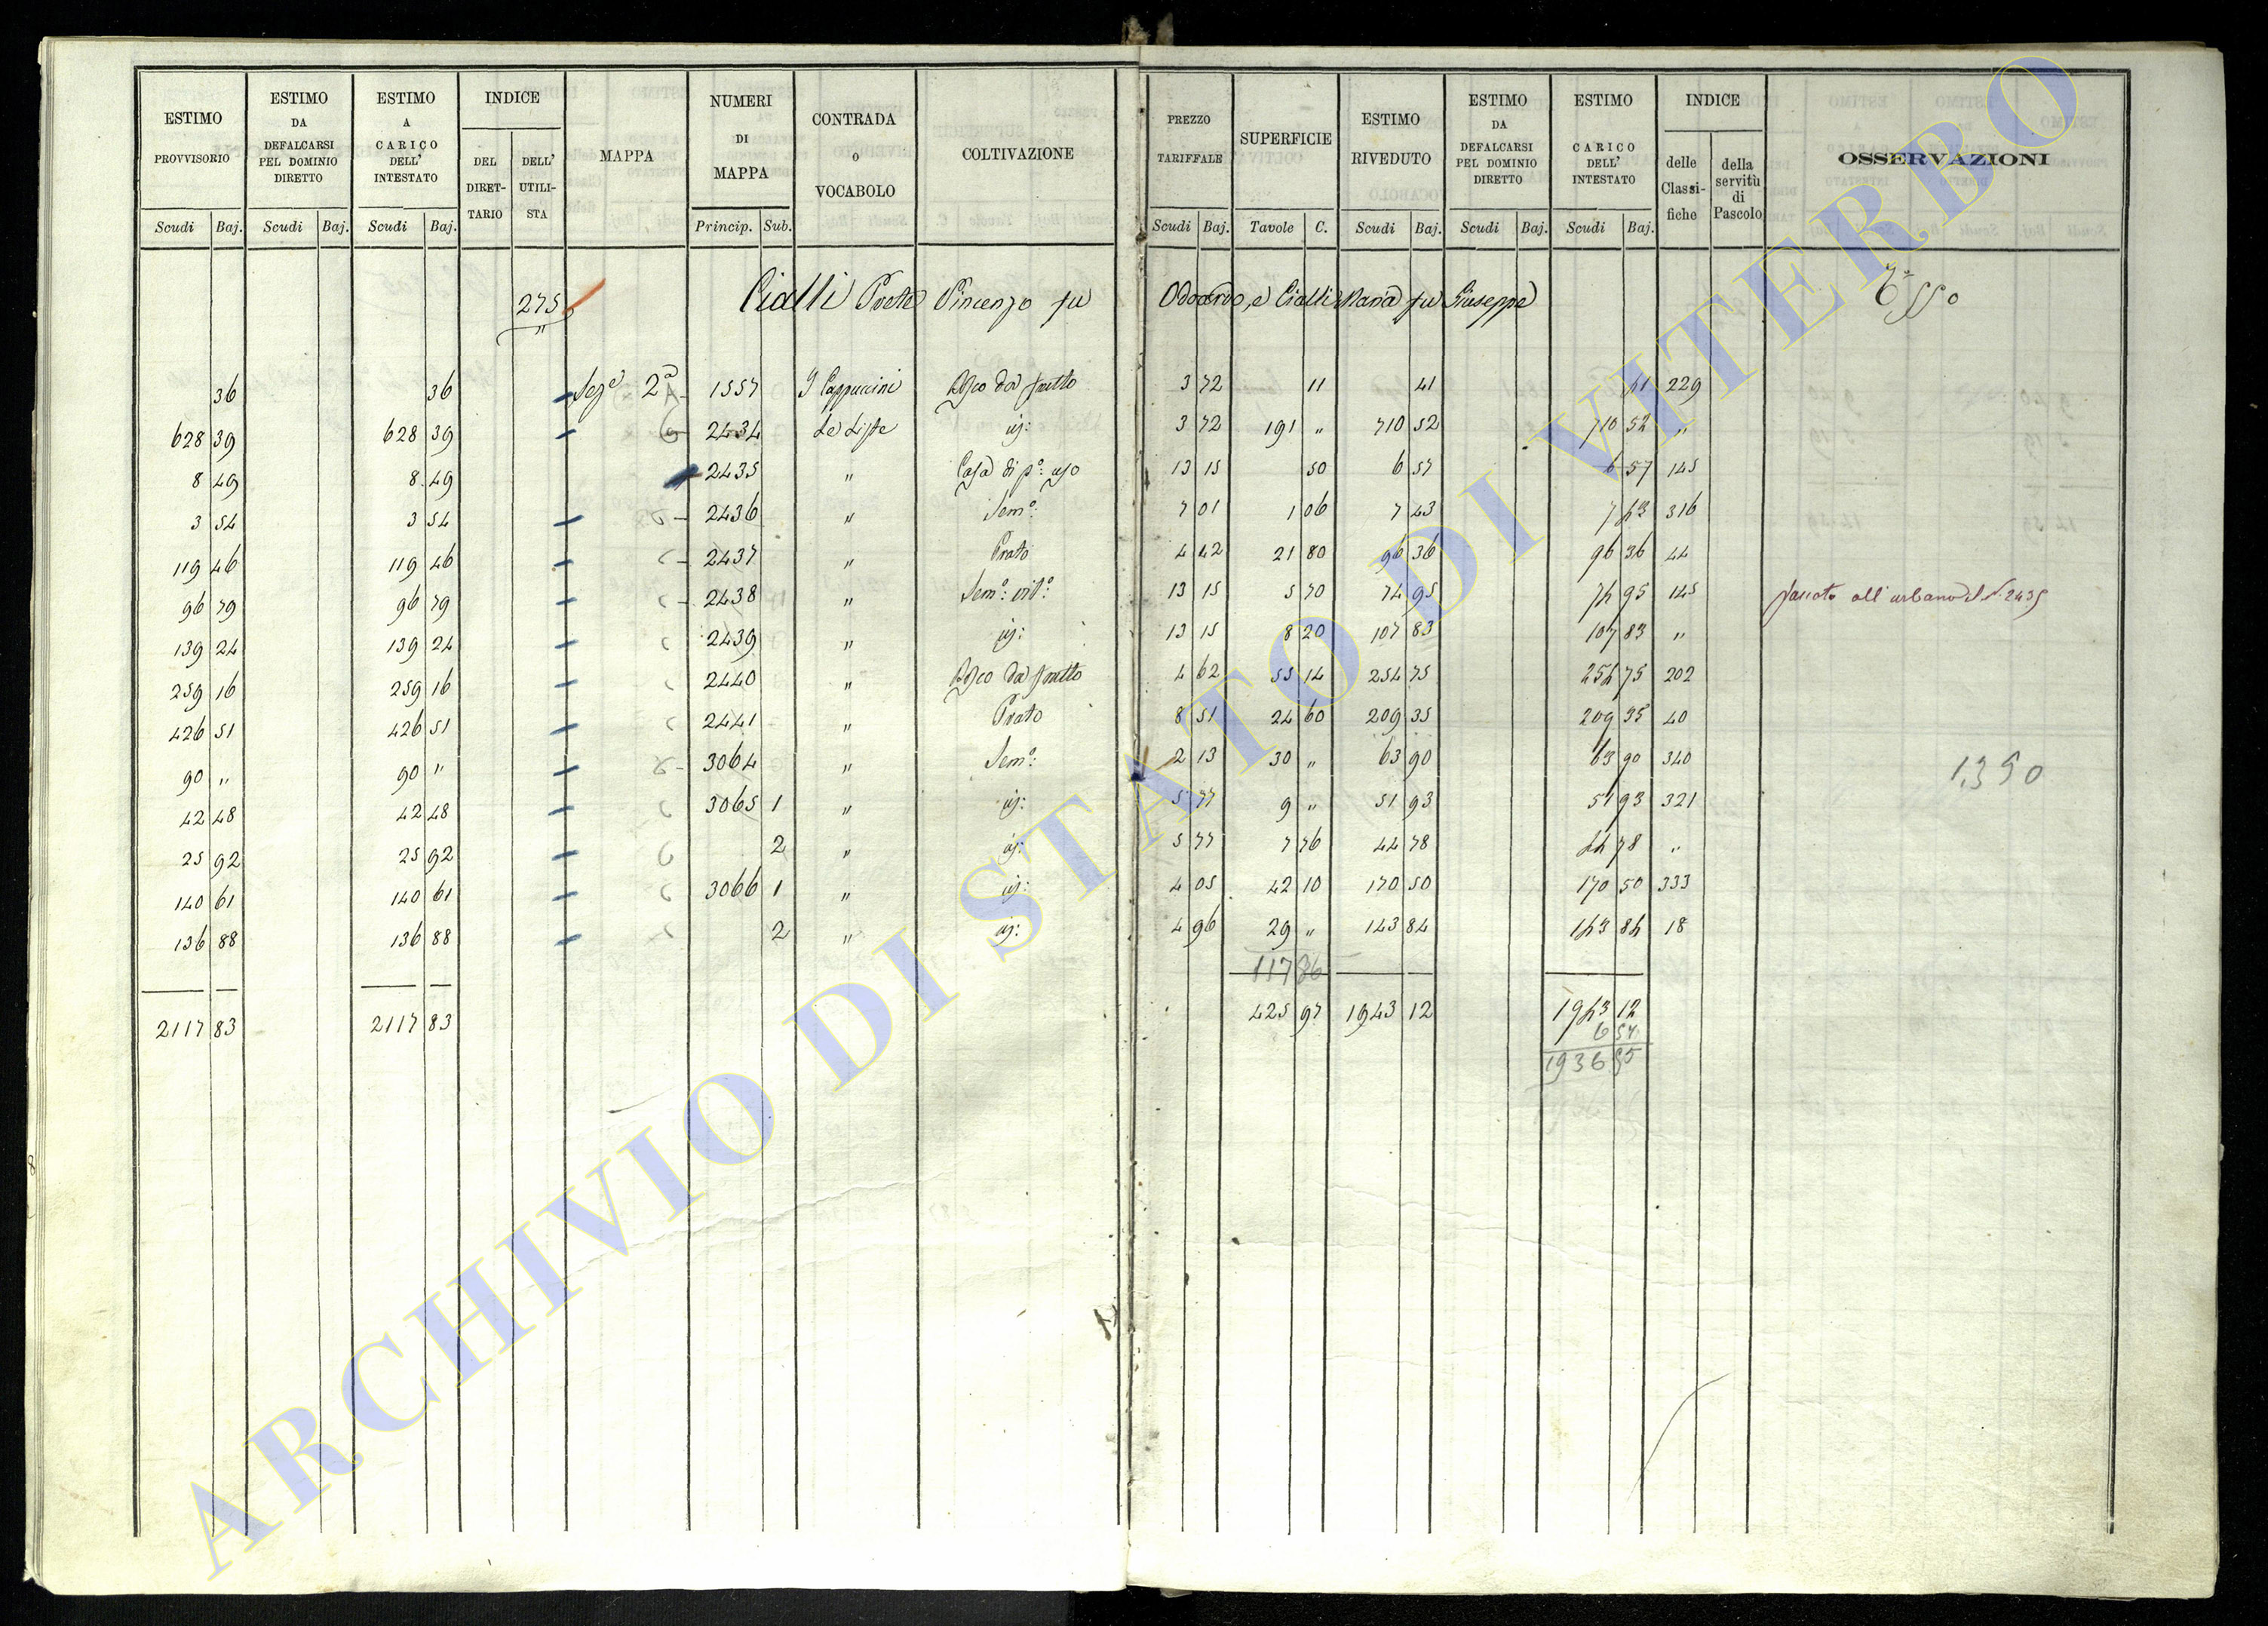 ESTIMO PROVVISORIO | ESTIMO DA DEFALCARSI PEL DOMINIO DIRETTO | ESTIMO A CARICO DELL' INTESTATO | INDICE DEL DIRET-TARIO | DELL' UTILI-STA | MAPPA | NUMERI DI MAPPA | CONTRADA o VOCABOLO | COLTIVAZIONE | PREZZO TARIFFALE | SUPERFICIE | ESTIMO RIVEDUTO | ESTIMO DA DEFALCARSI PEL DOMINIO DIRETTO | ESTIMO A CARICO DELL' INTESTATO | INDICE delle Classi-fiche | della servitù di Pascolo | OSSERVAZIONI
Scudi Baj. | Scudi Baj. | Scudi Baj. | Princip. Sub. | Scudi Baj. | Tavole C. | Scudi Baj. | Scudi Baj. | Scudi Baj.
275 Cialli Prete Vincenzo fu Odoardo, e Cialli Maria fu Giuseppe
36 | 36 | Sez.e 2a | 1557 | I Cappuccini | da frutto | 3 72 | 11 | 41 | 41 | 229
628 39 | 628 39 | 2434 | Le Liste | | 3 72 | 191 " | 710 52 | 710 52 | "
8 49 | 8 49 | 2435 | " | Casa di po: uso | 13 15 | 50 | 6 57 | 6 57 | 145
3 54 | 3 54 | 2436 | " | Semo: | 7 01 | 1 06 | 7 43 | 7 43 | 316
119 46 | 119 46 | 2437 | " | Prato | 4 42 | 21 80 | 96 36 | 96 36 | 44
96 79 | 96 79 | 2438 | " | Semo: vito: | 13 15 | 5 70 | 74 95 | 74 95 | 145 | passato all'urbano il No 2435
139 24 | 139 24 | 2439 | " | | 13 15 | 8 20 | 107 83 | 107 83 | "
259 16 | 259 16 | 2440 | " | da frutto | 4 62 | 55 14 | 254 75 | 254 75 | 202
426 51 | 426 51 | 2441 | " | Prato | 8 51 | 24 60 | 209 35 | 209 35 | 40
90 " | 90 " | 3064 | " | Semo: | 2 13 | 30 " | 63 90 | 63 90 | 340 | 1,390
42 48 | 42 48 | 3065 1 | " | | 5 77 | 9 " | 51 93 | 51 93 | 321
25 92 | 25 92 | 2 | " | | 5 77 | 7 76 | 44 78 | 44 78 | "
140 61 | 140 61 | 3066 1 | " | | 4 05 | 42 10 | 170 50 | 170 50 | 333
136 88 | 136 88 | 2 | " | | 4 96 | 29 " | 143 84 | 143 84 | 18
117 86
2117 83 | 2117 83 | 425 97 | 1943 12 | 1943 12
6 57
1936 55
ARCHIVIO DI STATO DI VITERBO